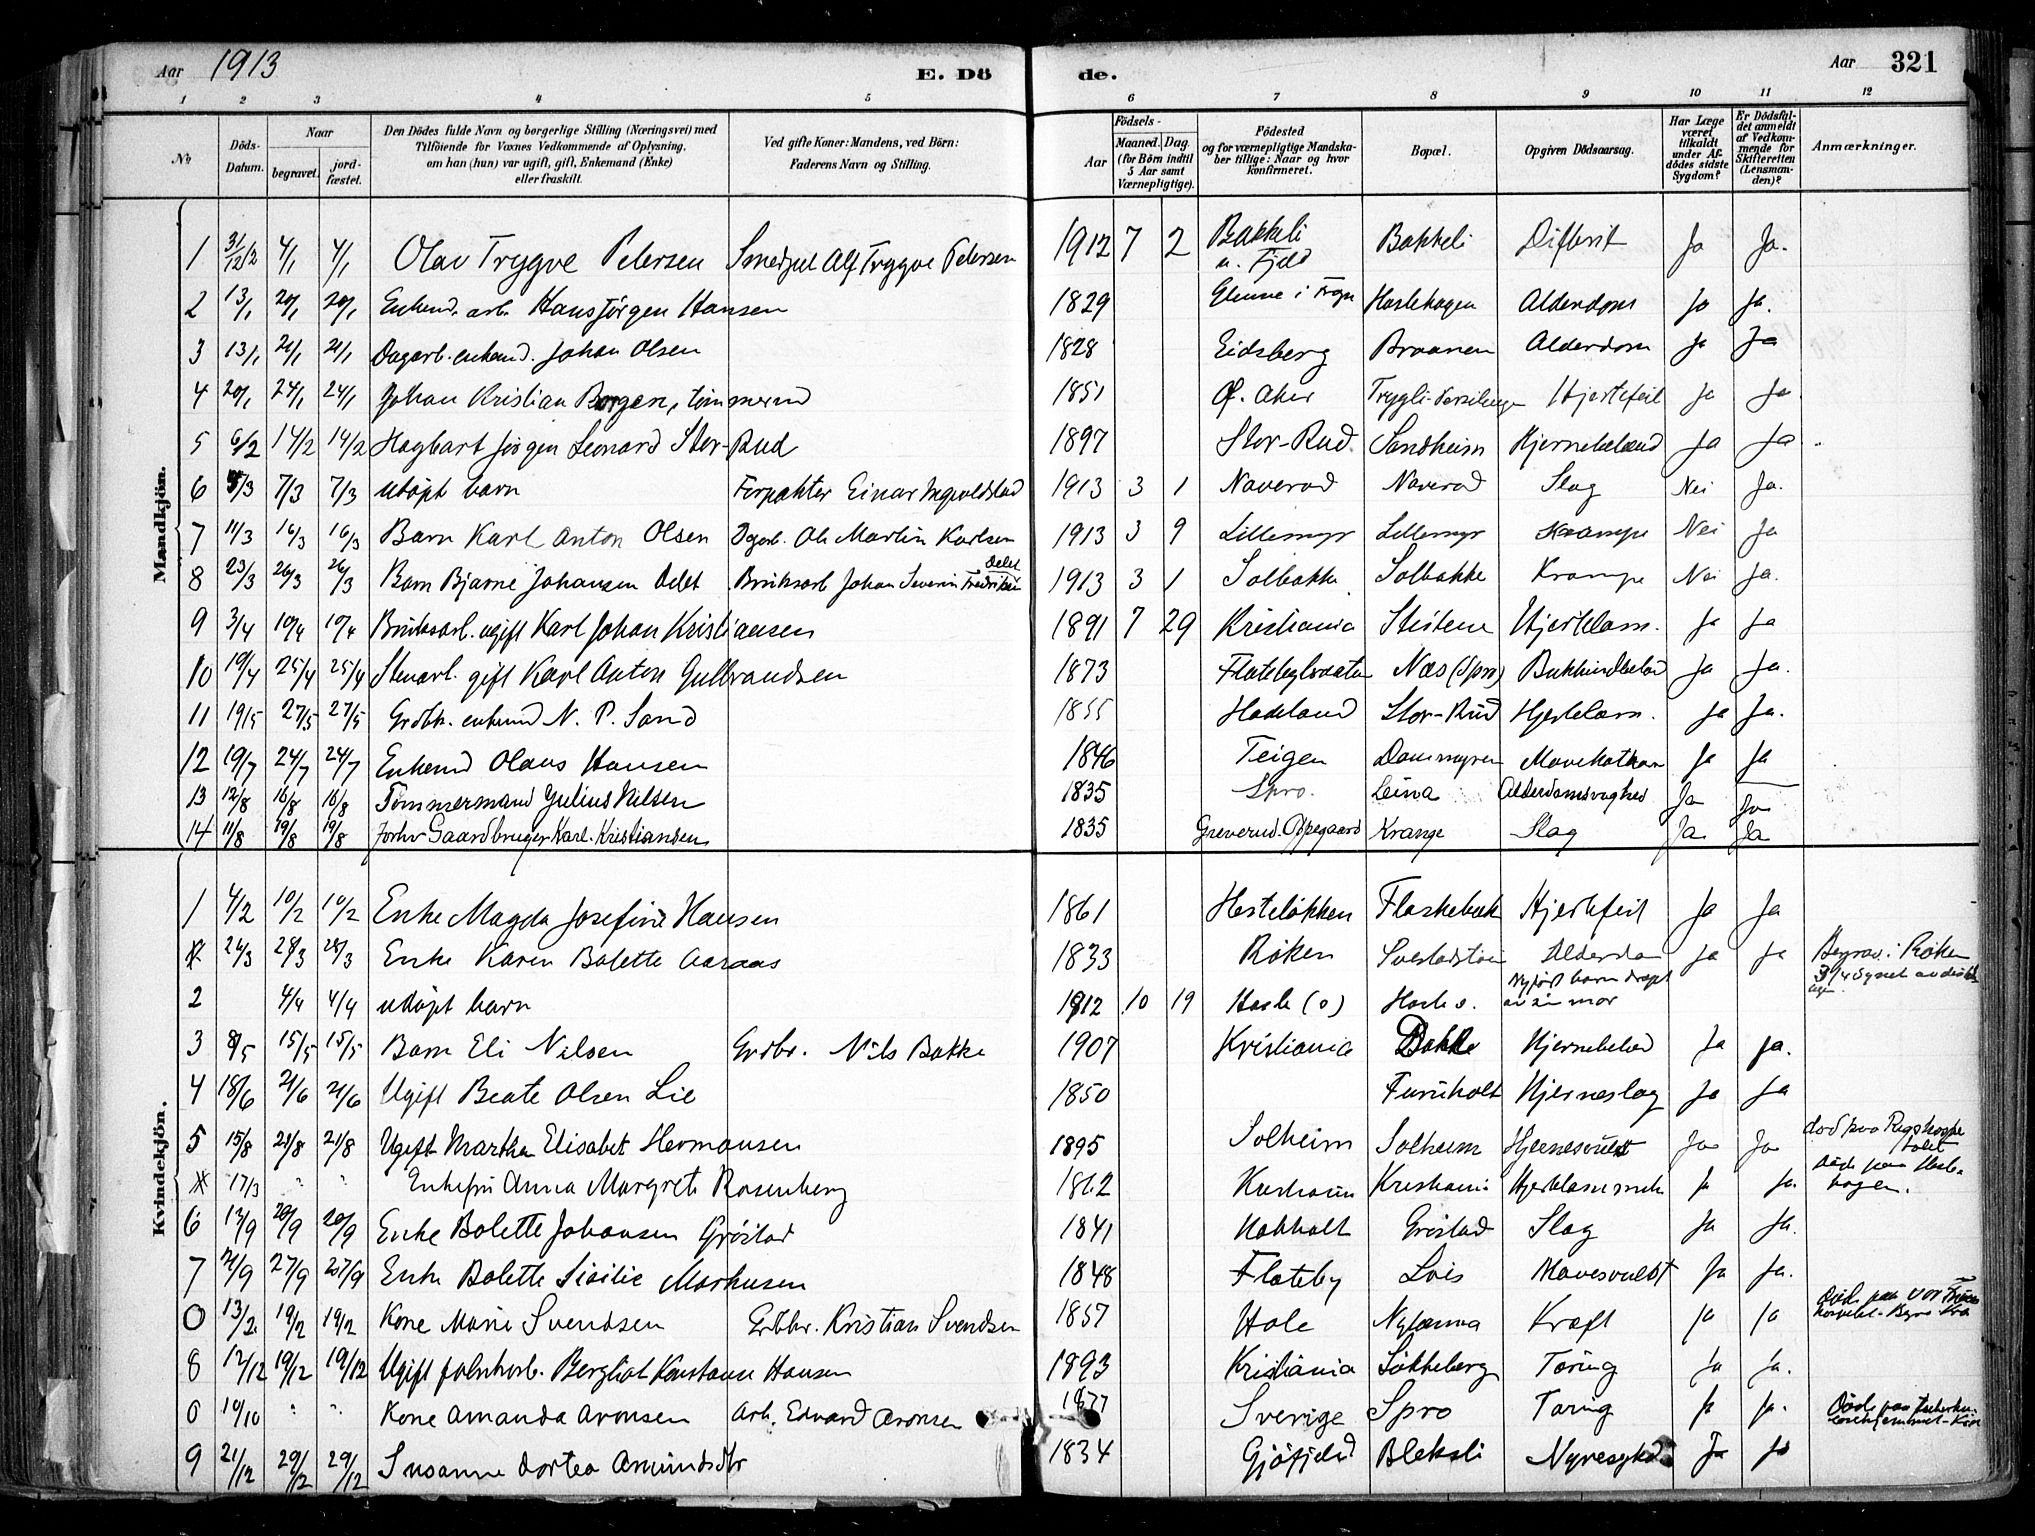 Aar 1913 E. Dö de. Aar 321
1 2 3 4 5 6 7 8 9 10 11 12
No
Döds-Datum.
Naar begravet. jord-fæstet.
Den Dödes fulde Navn og borgerlige Stilling (Næringsvei) med
Tilföiende for Voxnes Vedkommende af Oplysning,
om han (hun) var ugift, gift, Enkemand (Enke)
eller fraskilt.
Ved gifte Koner: Mandens, ved Börn:
Faderens Navn og Stilling.
Födsels-
Aar Maaned. Dag.
(for Börn indtil
5 Aar samt
Værnepligtige).
Födested
og for værnepligtige Mandska-
ber tillige: Naar og hvor
konfirmeret.
Bopæl.
Opgiven Dödsaarsag.
Har Læge
været
tilkaldt
under Af-
dödes sidste
Sygdom?
Er Dödsfal-
det anmeldt
af Vedkom-
mende for
Skifteretten
(Lensman-
den)?
Anmærkninger.
Mandkjön.
1 31/12 12 4/1 4/1 Olav Trygve Petersen Alf Trygve Petersen 1912 7 2 Bakkeli n. Fjeld Bakkeli Difterit Ja Ja.
2 13/1 20/1 20/1 Enkemd. arb. Hans Jörgen Hansen 1829 Glenne i Haslehagen Alderdom Ja Ja.
3 13/1 21/1 21/1 Dagarb. enkemd. Johan Olsen 1828 Eidsberg Braanen Alderdom Ja Ja
4 20/1 24/1 24/1 Johan Kristian Borgen, tömmermd 1851 Ø. Aker Hjertefeil Ja Ja
5 6/2 14/2 14/2 Hagbart Jörgen Leonard Stor-Rud 1897 Stor-Rud Sandheim Ja Ja
6 5/3 7/3 7/3 udöpt barn Forpakter Einar Ingvoldstad 1913 3 1 Naverud Naverud Slag Nei Ja.
7 11/3 16/3 16/3 Barn Karl Anton Olsen Dgarb. Ole Martin Karlsen 1913 3 9 Lillemyr Lillemyr Krampe Nei Ja
8 23/3 26/3 26/3 Barn Bjarne Johansen Delet Bruksarb. Johan Severin Fredriksen Delet 1913 3 1 Solbakke Solbakke Krampe Nei Ja.
9 3/4 10/4 10/4 Bruksarb. ugift Karl Johan Kristiansen 1891 7 29 Kristiania Steilene Hjertelam. Ja Ja
10 19/4 25/4 25/4 Stenarb. gift Karl Anton Gulbrandsen 1873 Flatebybraaten Næs (Spro) Ja Ja.
11 19/5 27/5 27/5 Grdbr. enkemd N. P. Sand 1855 Hadeland Stor-Rud Hjertelam. Ja Ja.
12 19/7 24/7 24/7 Enkemd Olaus Hansen 1846 Teigen Dammyren Mavekatarr Ja Ja
13 12/8 16/8 16/8 Tömmermand Julius Nilsen 1835 Spro. Leina Alderdomsvaghed Ja Ja
14 11/8 19/8 19/8 Forhv Gaardbruger Karl. Kristiansen 1835 Greverud. Oppegaard Krange Slag Ja Ja
Kvindekjön.
1 4/2 10/2 10/2 Enke Magda Josefine Hansen 1861 Hesteløkken Flaskebæk Hjertefeil Ja Ja
24/3 28/3 28/3 Enke Karen Bolette Aaraas 1833 Røken Alderdom Ja Ja Begrav. i Røken
2 4/4 4/4 udöpt barn 1912 10 19 Hasle (ö) Hasle ö. Nyfödt barn dræpt av sin mor
3 8/5 15/5 15/5 Barn Eli Nilsen Grdbr. Nils Bakke 1907 Kristiania Bakke Ja Ja.
4 18/6 21/6 21/6 Ugift Beate Olsen Lie 1850 Furuholt Hjerneslag Ja Ja
5 15/8 21/8 21/8 Ugift Martha Elisabet Hermansen 1895 Solheim Solheim Hjernesvulst Ja Ja död paa Rigshospitalet
17/3 " " Enkefru Anna Margrete Rosenberg 1862 Kristiania Kristiania Ja Ja. Døde paa Haslehagen.
6 12/9 20/9 20/9 Enke Bolette Johansen Gröstad 1841 Kokholt Gröstad Slag Ja Ja.
7 21/9 27/9 27/9 Enke Bolette Sisilie Markusen 1848 Flateby Lois Mavesvulst Ja Ja.
0 13/2 19/2 19/2 Kone Marie Svendsen Grdbr. Kristian Svendsen 1857 Hole Kræft Ja Ja Døde paa Vor Frue
8 12/12 19/12 19/12 Ugift Bergliot Konstanse Hansen 1893 Kristiania Søkkeberg Tæring Ja Ja.
0 10/10 " " Kone Amanda Aronsen Arb. Edvard Aronsen 1877 Sverige Spro Tæring Ja Ja. Døde paa
9 21/12 29/12 29/12 Susanne Dortea Amundsdtr 1834 Gjöfjeld Bleksli Nyresygd. Ja Ja